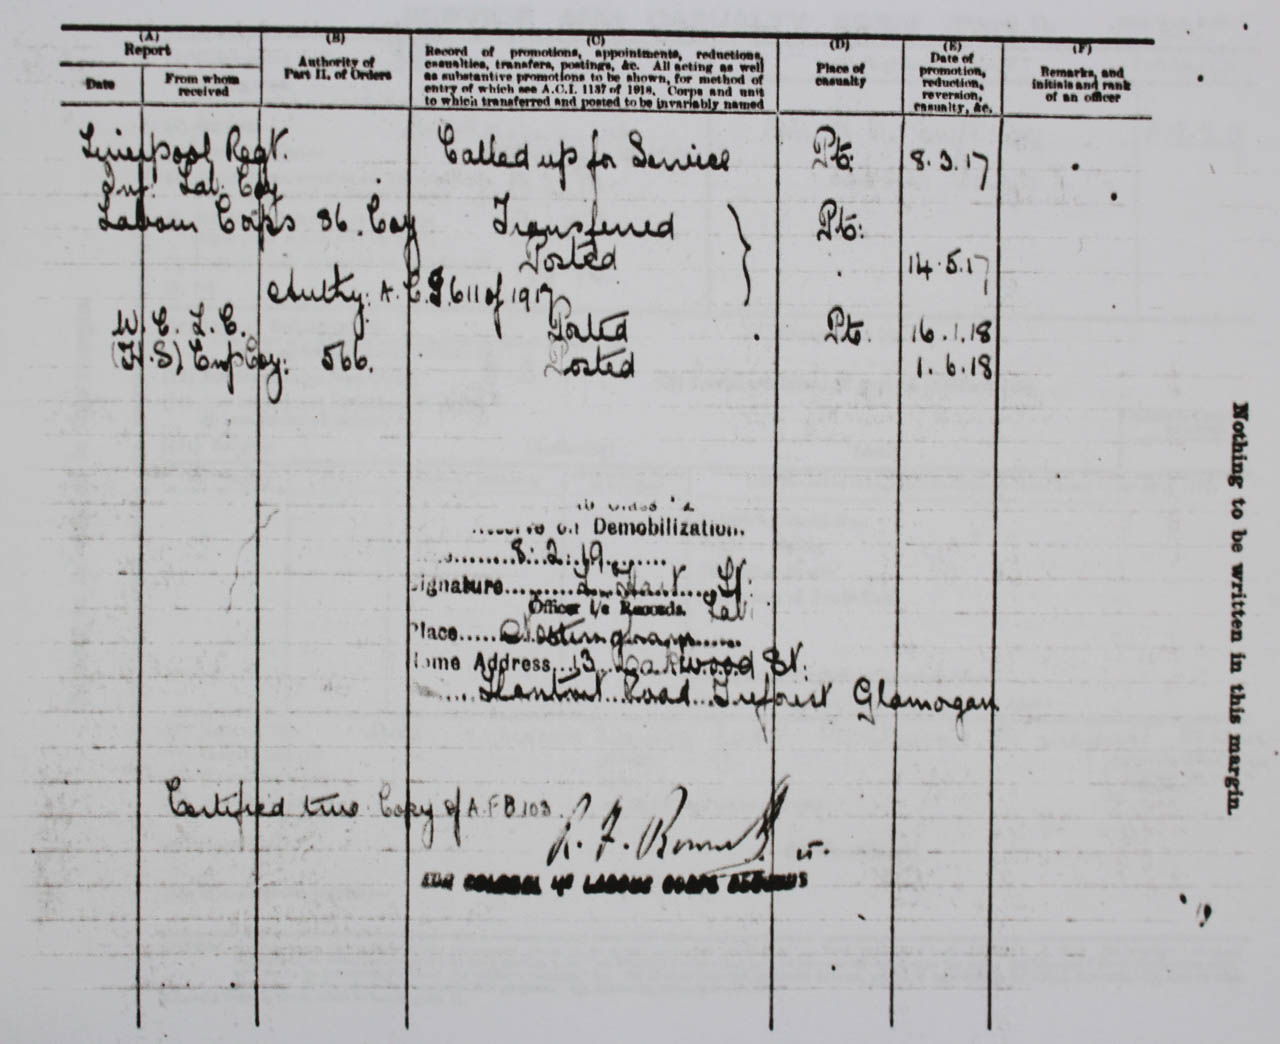 (A)
Report
Date
From whom
received
(B)
Authority of
Part II. of Orders
(C)
Record of promotions, appointments, reductions,
casualties, transfers, postings, &c. All acting as well
as substantive promotions to be shown, for method of
entry of which see A.C.I. 1137 of 1918. Corps and unit
to which transferred and posted to be invariably named
(D)
Place of
casualty
(E)
Date of
promotion,
reduction,
reversion,
casualty, &c.
(F)
Remarks, and
initials and rank
of an officer
Liverpool Regt. Called up for Service Pte. 8.3.17
Inf. Lab. Coy
Labour Corps 86. Coy Transferred Pte:
Posted 14.5.17
Authy: A.C.I. 611 of 1917
W. C. L. C. Posted Pte. 16.1.18
(H.S) Emp Coy: 566. Posted 1.6.18
on Demobilization.
8.2.19
Signature Hart Lt.
Officer i/c Records. Lab.
Place Nottingham
Home Address 13 Oakwood St.
Road Treforest Glamogan
Certified true Copy of A.F B 103
R. F.
FOR COLONEL LABOUR CORPS RECORDS
Nothing to be written in this margin.